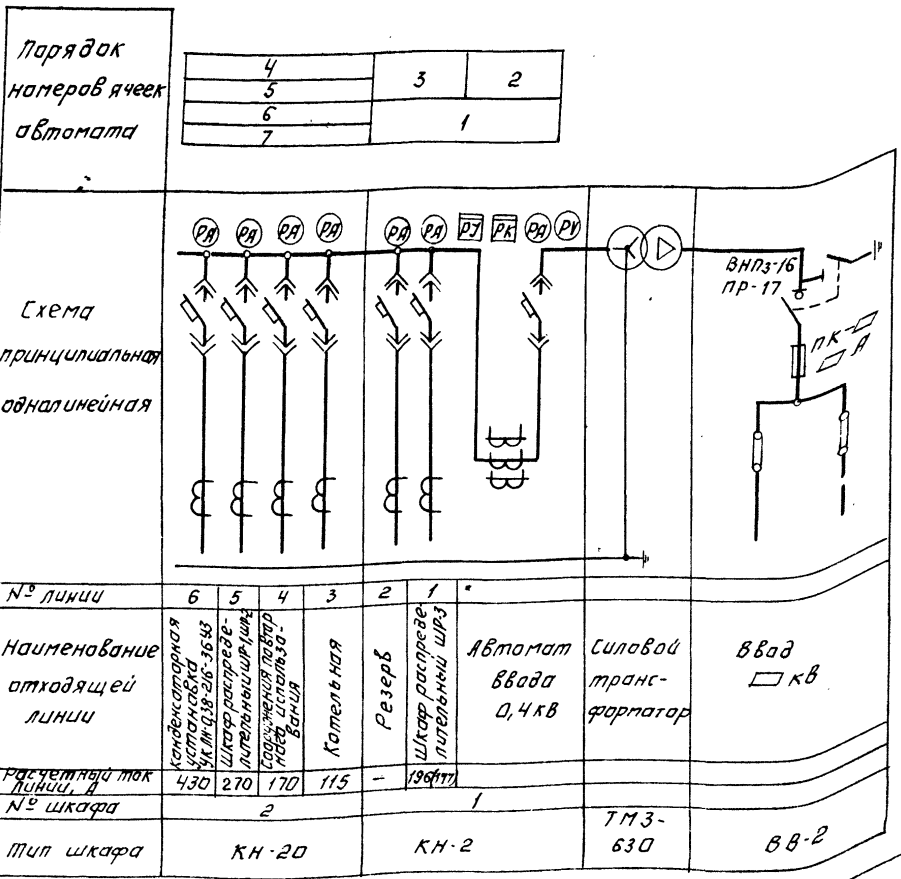 Порядок
номеров ячеек
автомата
4
5
6
7
3
2
1
Схема
принципиальная
однолинейная
PA
PA
PA
PA
PA
PA
PJ
PK
PA
PV
ВНПз-16
ПР-17
ПК-
А
№ линии
6
5
4
3
2
1
Наименование
отходящей
линии
Конденсаторная
установка
Шкаф распреде-
лительный ШР-1, ШР-2
Сооружения повтор
ного использо-
вания
Котельная
Резерв
Шкаф распреде-
лительный ШР-3
Автомат
ввода
0,4 кВ
Силовой
транс-
форматор
Ввод
кВ
Расчетный ток
линии, А
430
270
170
115
–
196(177)
№ шкафа
2
1
Тип шкафа
КН-20
КН-2
ТМЗ-
630
ВВ-2